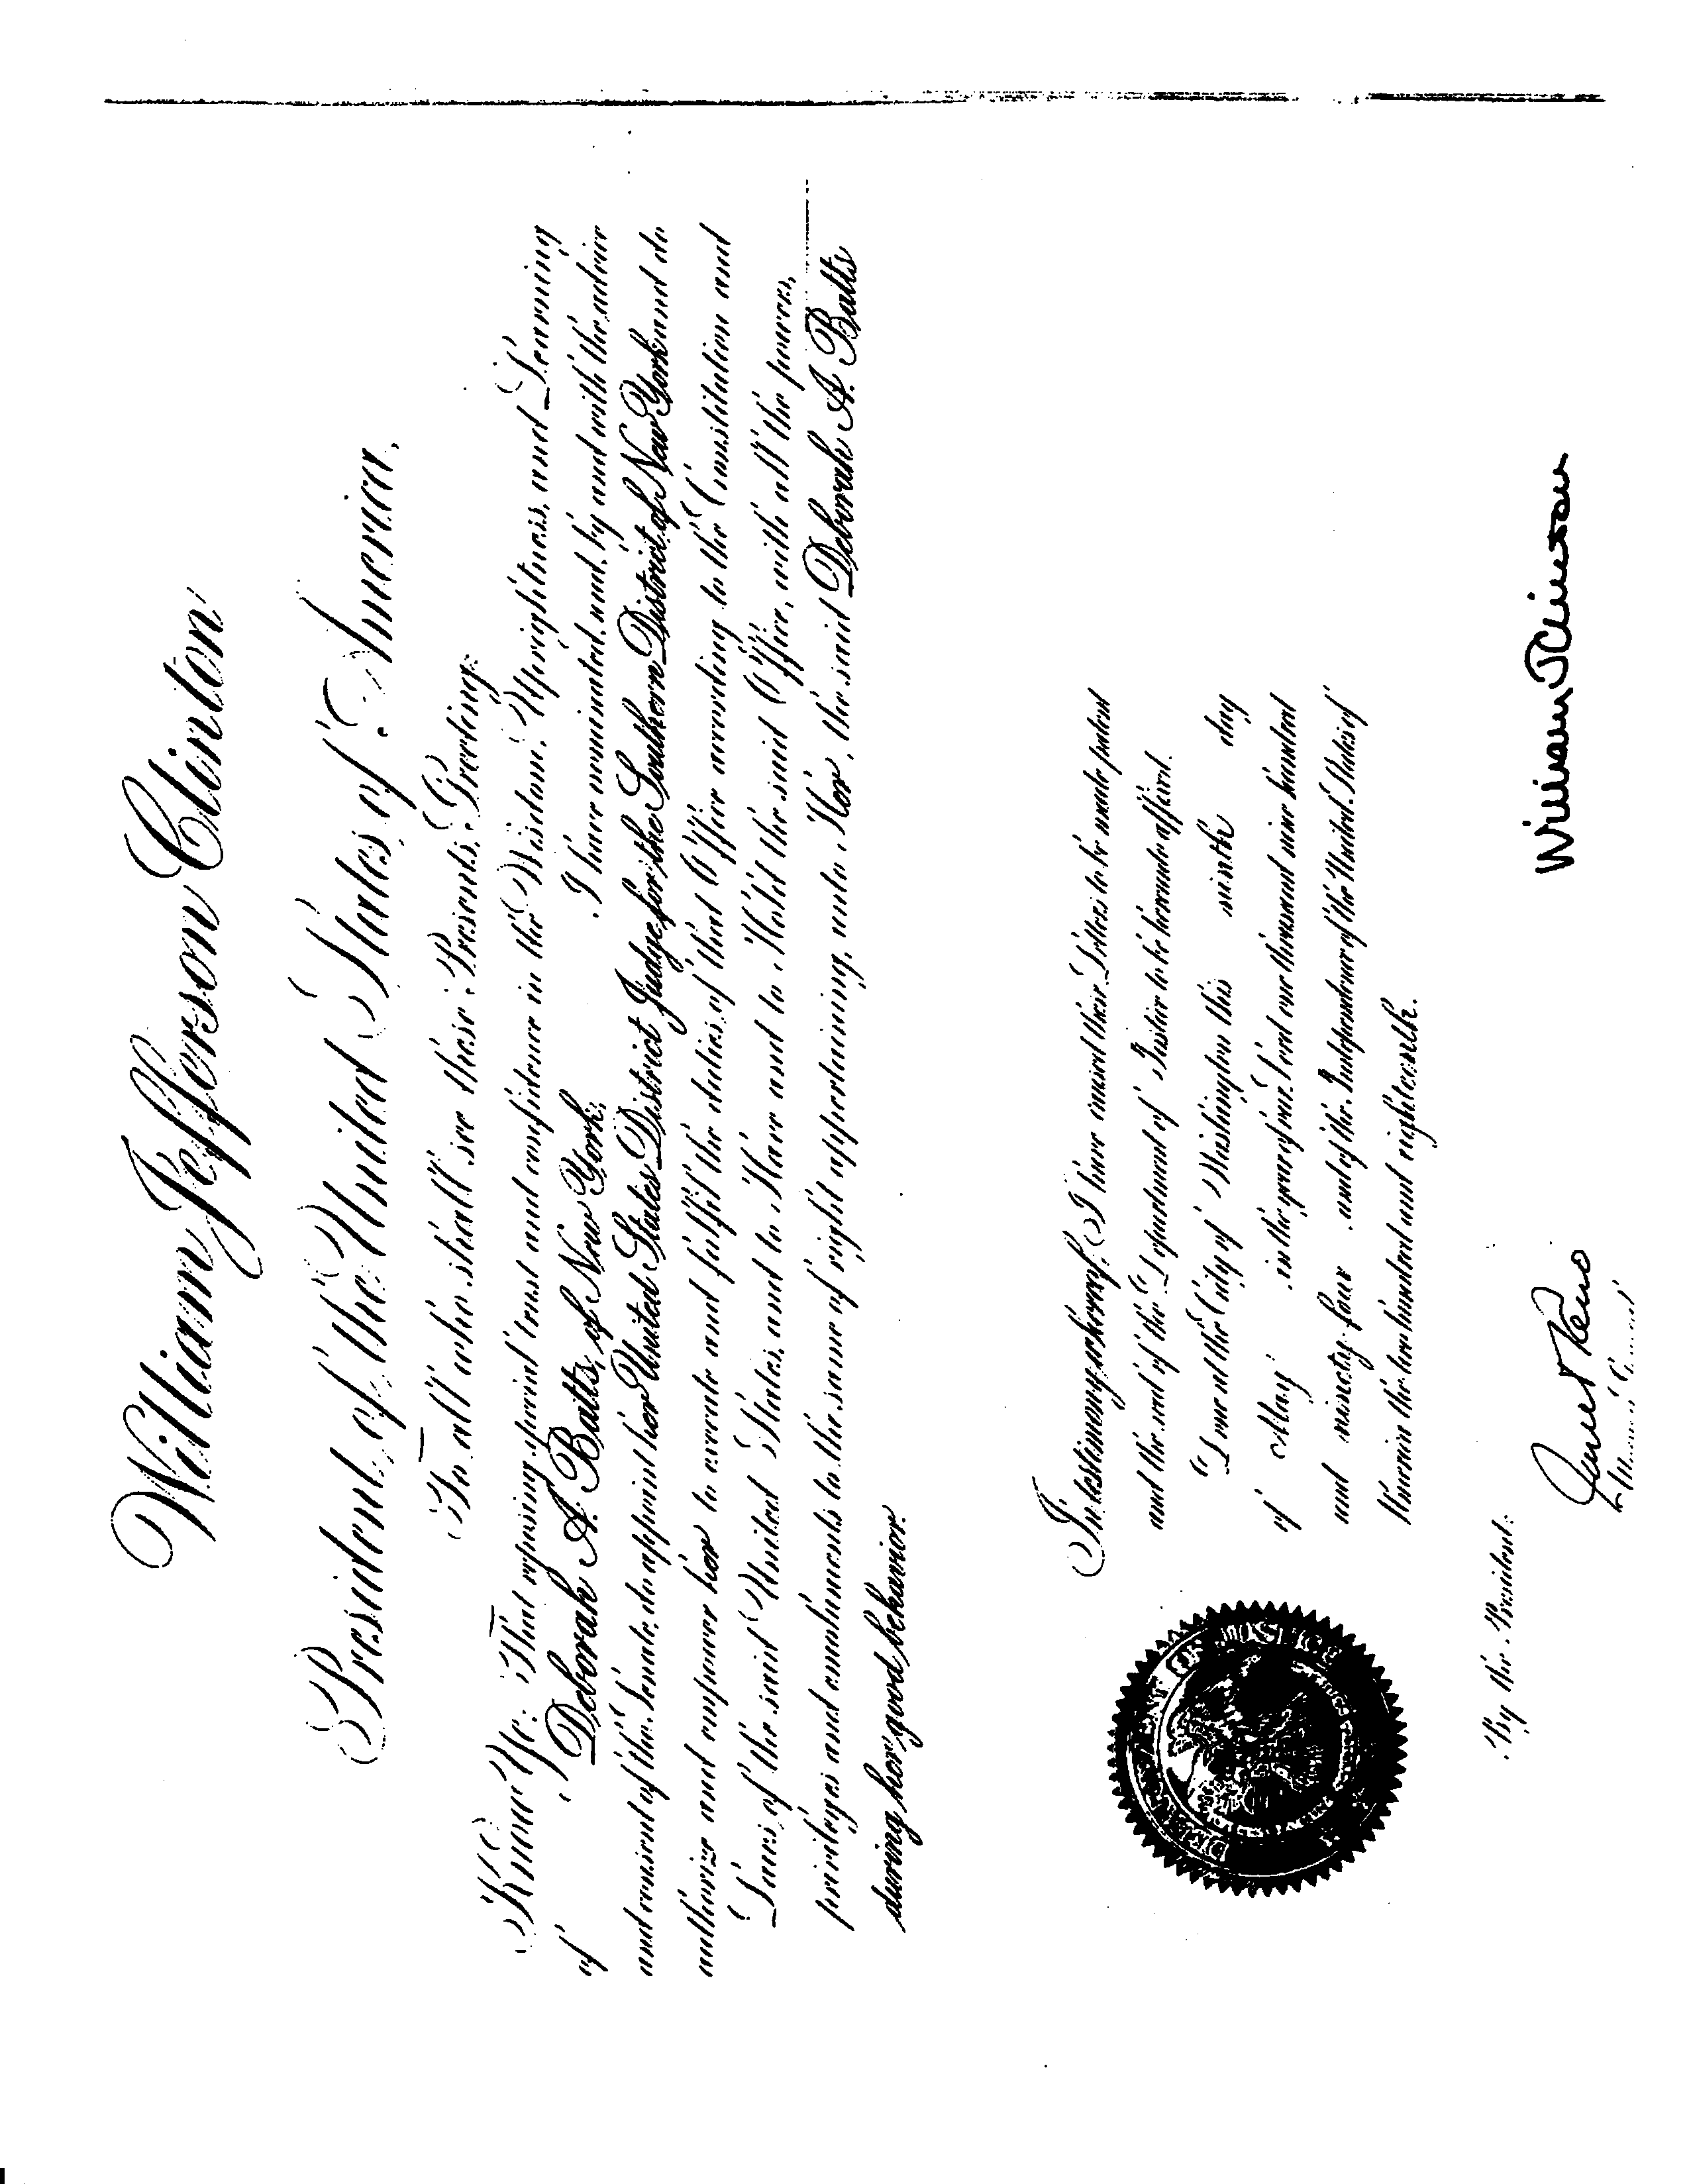 William Jefferson Clinton
President of the United States of America,
To all who shall see these Presents, Greeting:
Know Ye: That reposing special trust and confidence in the Wisdom, Uprightness, and Learning
of Deborah A. Batts, of New York, I have nominated, and, by and with the advice
and consent of the Senate, do appoint her United States District Judge for the Southern District of New York and do
authorize and empower her to execute and fulfil the duties of that Office according to the Constitution and
Laws of the said United States, and to Have and to Hold the said Office, with all the powers,
privileges and emoluments to the same of right appertaining, unto Her, the said Deborah A. Batts
during her good behavior.
In testimony whereof, I have caused these Letters to be made patent
and the seal of the Department of Justice to be hereunto affixed.
Done at the City of Washington this ninth day
of May in the year of our Lord one thousand nine hundred
and ninety-four and of the Independence of the United States of
America the two hundred and eighteenth.
DEPARTMENT OF JUSTICE
William J Clinton
By the President:
Janet Reno
Attorney General